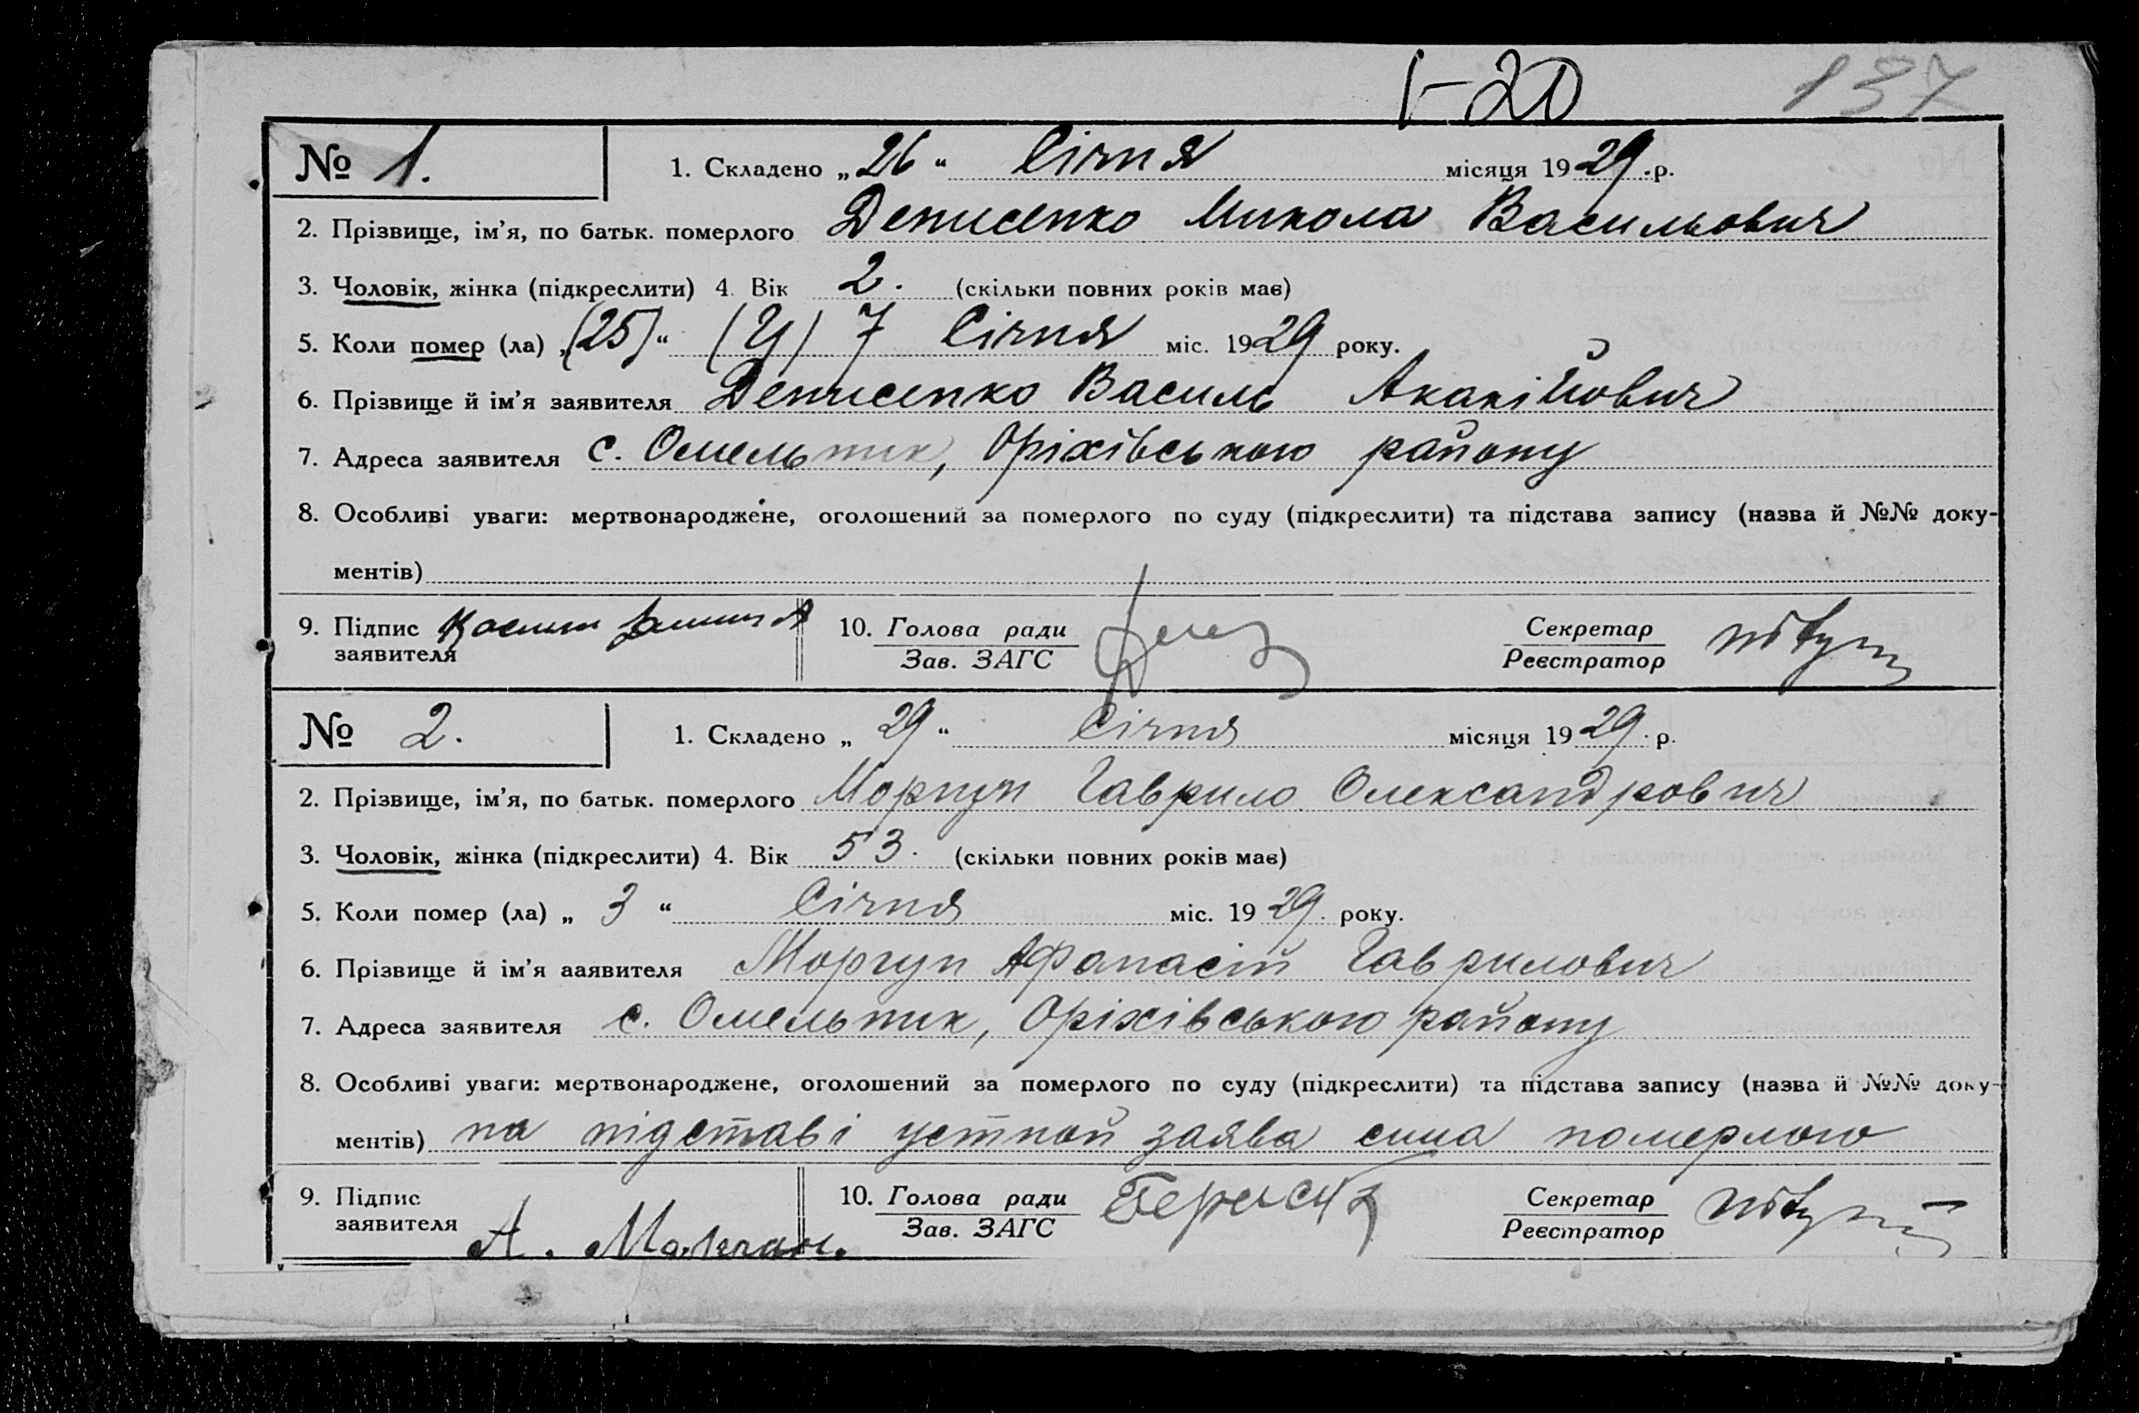 1-20 137
№ 1. 1. Складено „26“ Січня місяця 1929 р.
2. Прізвище, ім’я, по батьк. померлого Денисенко Микола Васильович
3. Чоловік, жінка (підкреслити) 4. Вік 2. (скільки повних років має)
5. Коли помер (ла) „(25)“ (У) 7 Січня міс. 1929 року.
6. Прізвище й ім’я заявителя Денисенко Василь Акакійович
7. Адреса заявителя с. Омельник, Оріхівського району
8. Особливі уваги: мертвонароджене, оголошений за померлого по суду (підкреслити) та підстава запису (назва й №№ доку-
ментів)
9. Підпис заявителя 10. Голова ради Зав. ЗАГС Секретар Реєстратор
№ 2. 1. Складено „29“ Січня місяця 1929 р.
2. Прізвище, ім’я, по батьк. померлого Моргун Гаврило Олександрович
3. Чоловік, жінка (підкреслити) 4. Вік 53. (скільки повних років має)
5. Коли помер (ла) „3“ Січня міс. 1929 року.
6. Прізвище й ім’я заявителя Моргун Афанасій Гаврилович
7. Адреса заявителя с. Омельник, Оріхівського району
8. Особливі уваги: мертвонароджене, оголошений за померлого по суду (підкреслити) та підстава запису (назва й №№ доку-
ментів) на підставі устной заява сина померлого
9. Підпис заявителя А. 10. Голова ради Зав. ЗАГС Секретар Реєстратор